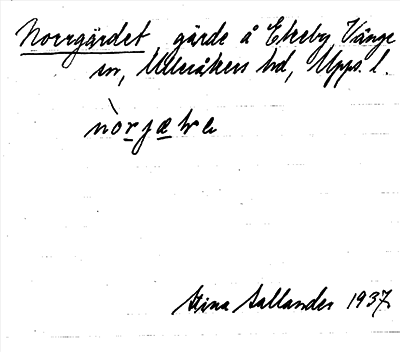 Norrgärdet gärde å Ekeby Vänge
sn, Ulleråkers hd, Upps. l.
Stina Sallander 1937